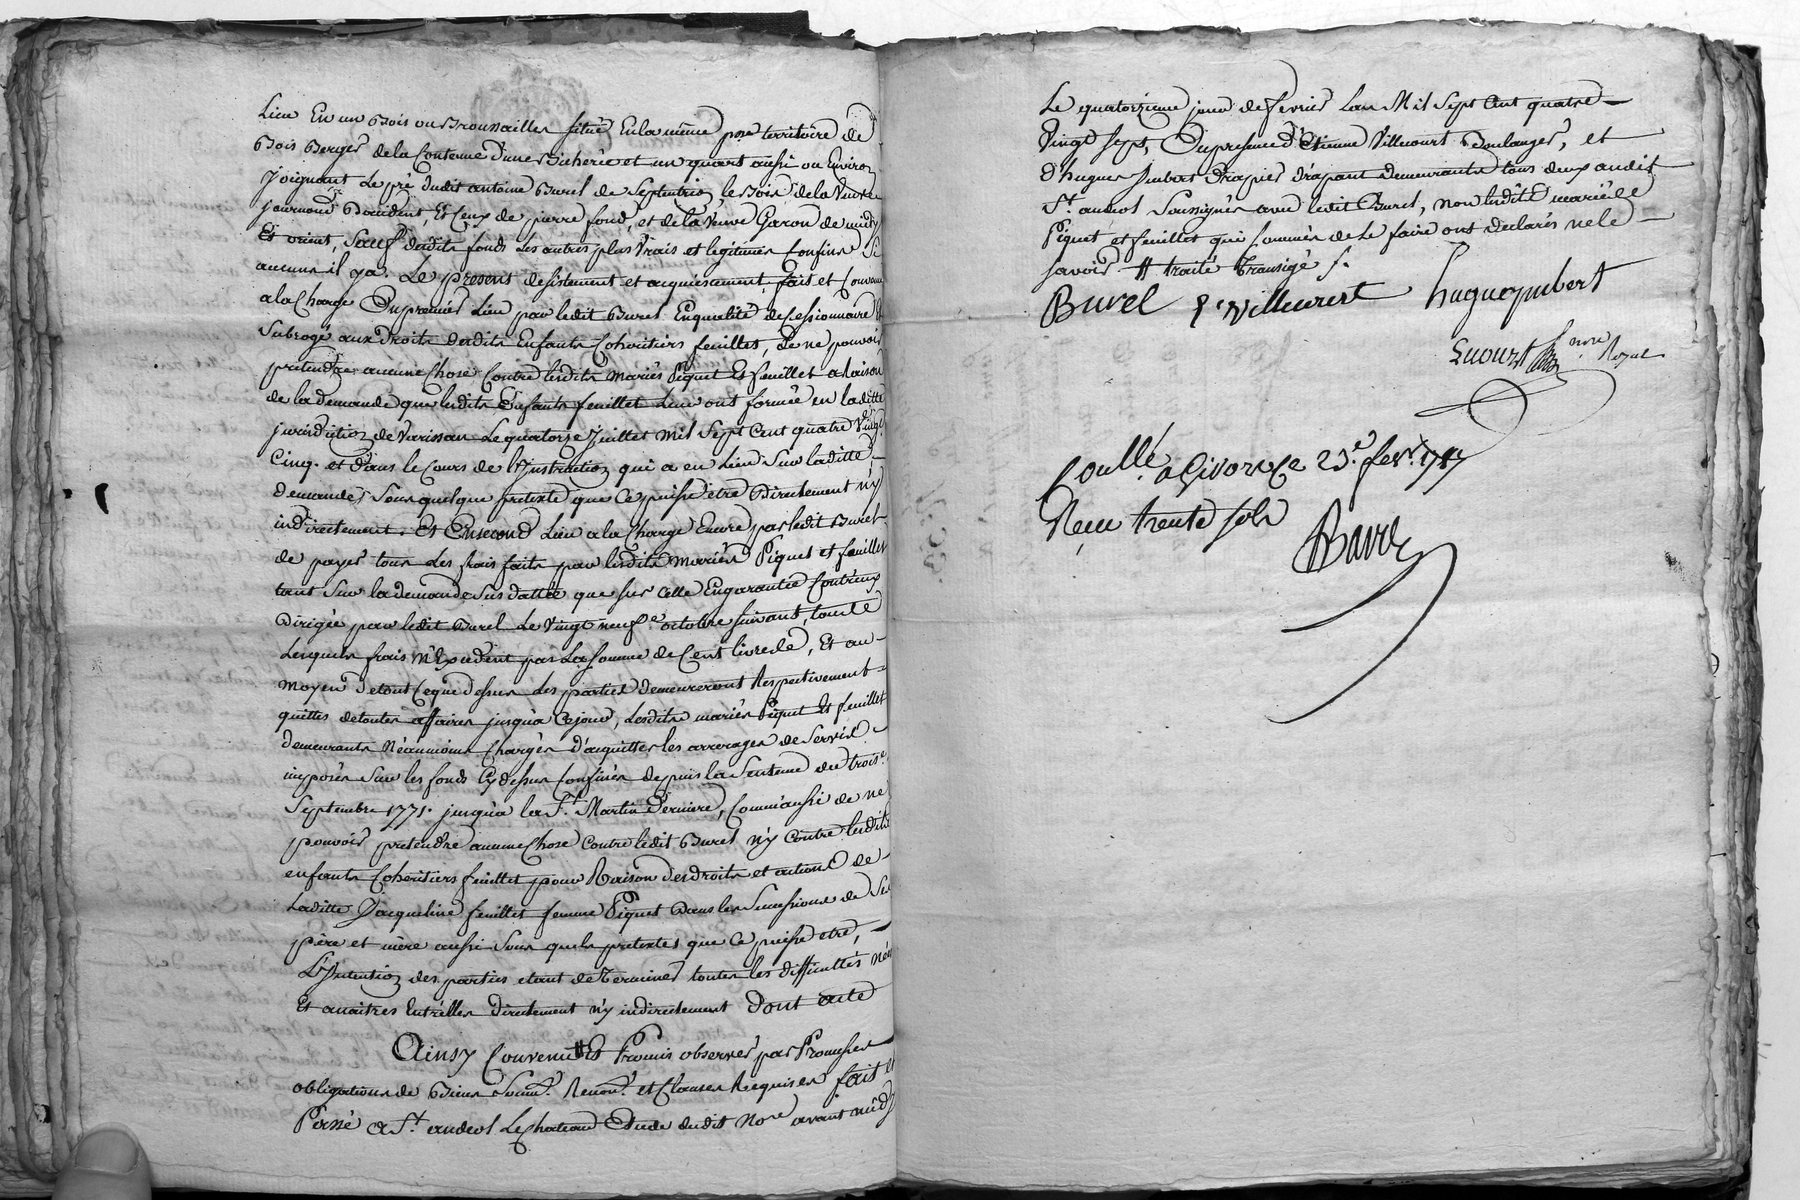 Lieu En un Bois ou Broussailles situé En la même pnte territoire de
Bois Berger de la Contenue d'une Bicherée et un quart aussi ou Environ
Joignant Le pré dudit antoine Burel de Septentrion, le Bois de la Veuve
journoud Occident, Et Ceux de pierre fond, et de la Veuve Garon de midy
Et orient, Sauf desdits fonds Les autres plus Vrais et legitimes Confins Si
aucuns il y a. Le present desistement et acquiescement fait et Convenu
a la Charge En premier Lieu par ledit Burel En qualité de Cessionnaire Et
Subrogé aux Droits desdits Enfants Cohéritiers feuillet, de ne pouvoir
pretendre aucune Chose Contre lesdits Mariés Piquet Et feuillet a Raison
de la demande que lesdits Enfants feuillet Leur ont formée en laditte
jurisdiction de Varissan Le quatorze Juillet mil Sept Cent quatre Vingt
Cinq. et dans le Cours de l'Instruction qui a eu Lieu Sur laditte
demande, Sous quelque pretexte que Ce puisse être Directement n'y
indirectement. Et En second Lieu a la Charge Encore par ledit Burel
de payer tous Les frais faits par lesdits Mariés Piquet et feuillet
tant Sur la demande Susdattée que sur Celle En garantie Contr'eux
Dirigée par ledit Burel Le Vingt neuf.e octobre suivant, tous
Lesquels frais n'Excedent pas La somme de Cent livres, Et au
moyen de tout Ce que dessus Les parties demeureront Respectivement
quittes de toutes affaires jusqu'a Ce jour, Lesdits mariés Piquet Et feuillet
demeurants Néanmoins Chargés d'acquitter les arrerages de Servis
imposés Sur les fonds Cy dessus Confinés depuis la Sentence du trois.e
Septembre 1771. jusqu'a la St. Martin Derniere, Comm'aussi de ne
pouvoir pretendre aucune Chose Contre ledit Burel n'y Contre lesdits
enfants Coheritiers feuillet pour Raison des droits et actions de
Laditte Jacqueline feuillet femme Piquet Dans les Successions de Ses
père et mère aussi Sous quels pretextes que Ce puisse etre,
L'Intention des parties etant de Terminer toutes les difficultés nées
Et a naitres Entr'elles Directement n'y indirectement Dont acte
Ainsy Convenu # Et Promis observer par Promesses
obligations de Biens Soum.s Renon.s et Clauses Requises fait et
Passé a St. andeol Le Chateau Etude dudit Nore avant midy
Le quatorzieme jour de fevrier L'an Mil Sept Cent quatre
Vingt Sept, En presence d'Etienne Villecourt Boulanger, et
d'hugues Jmbert Drapier drapant demeurants tous deux audit
St. andeol Soussignés avec ledit Burel, non lesdits mariés
Piquet et feuillet qui Sommés de Le faire ont declarés ne le
savoir # traité transigé
Burel E Villecourt hugue jmbert
nore Royal
Conllé. a Givors Ce 23.e fev.r 1787
Reçu trente sols